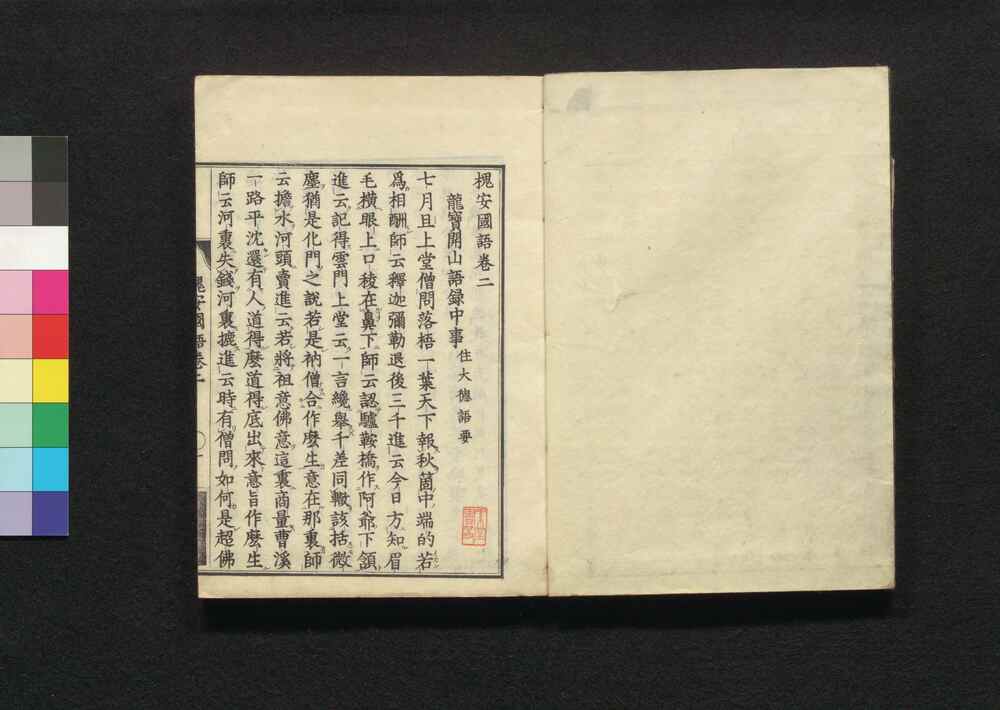 槐安國語卷二
龍寶開山語録中事 住大德語要
七月旦上堂僧問落梧一葉天下報秋箇中端的若
爲相酬師云釋迦彌勒退後三千進云今日方知眉
毛横眼上口稜在鼻下師云認驢鞍橋作阿爺下頷
進云記得雲門上堂云一言纔舉千差同轍該括微
塵猶是化門之說若是衲僧合作麼生意在那裏師
云擔水河頭賣進云若將祖意佛意這裏商量曹溪
一路平沈還有人道得麼道得底出來意旨作麼生
師云河裏失錢河裏摝進云時有僧問如何是超佛
槐安國語卷二